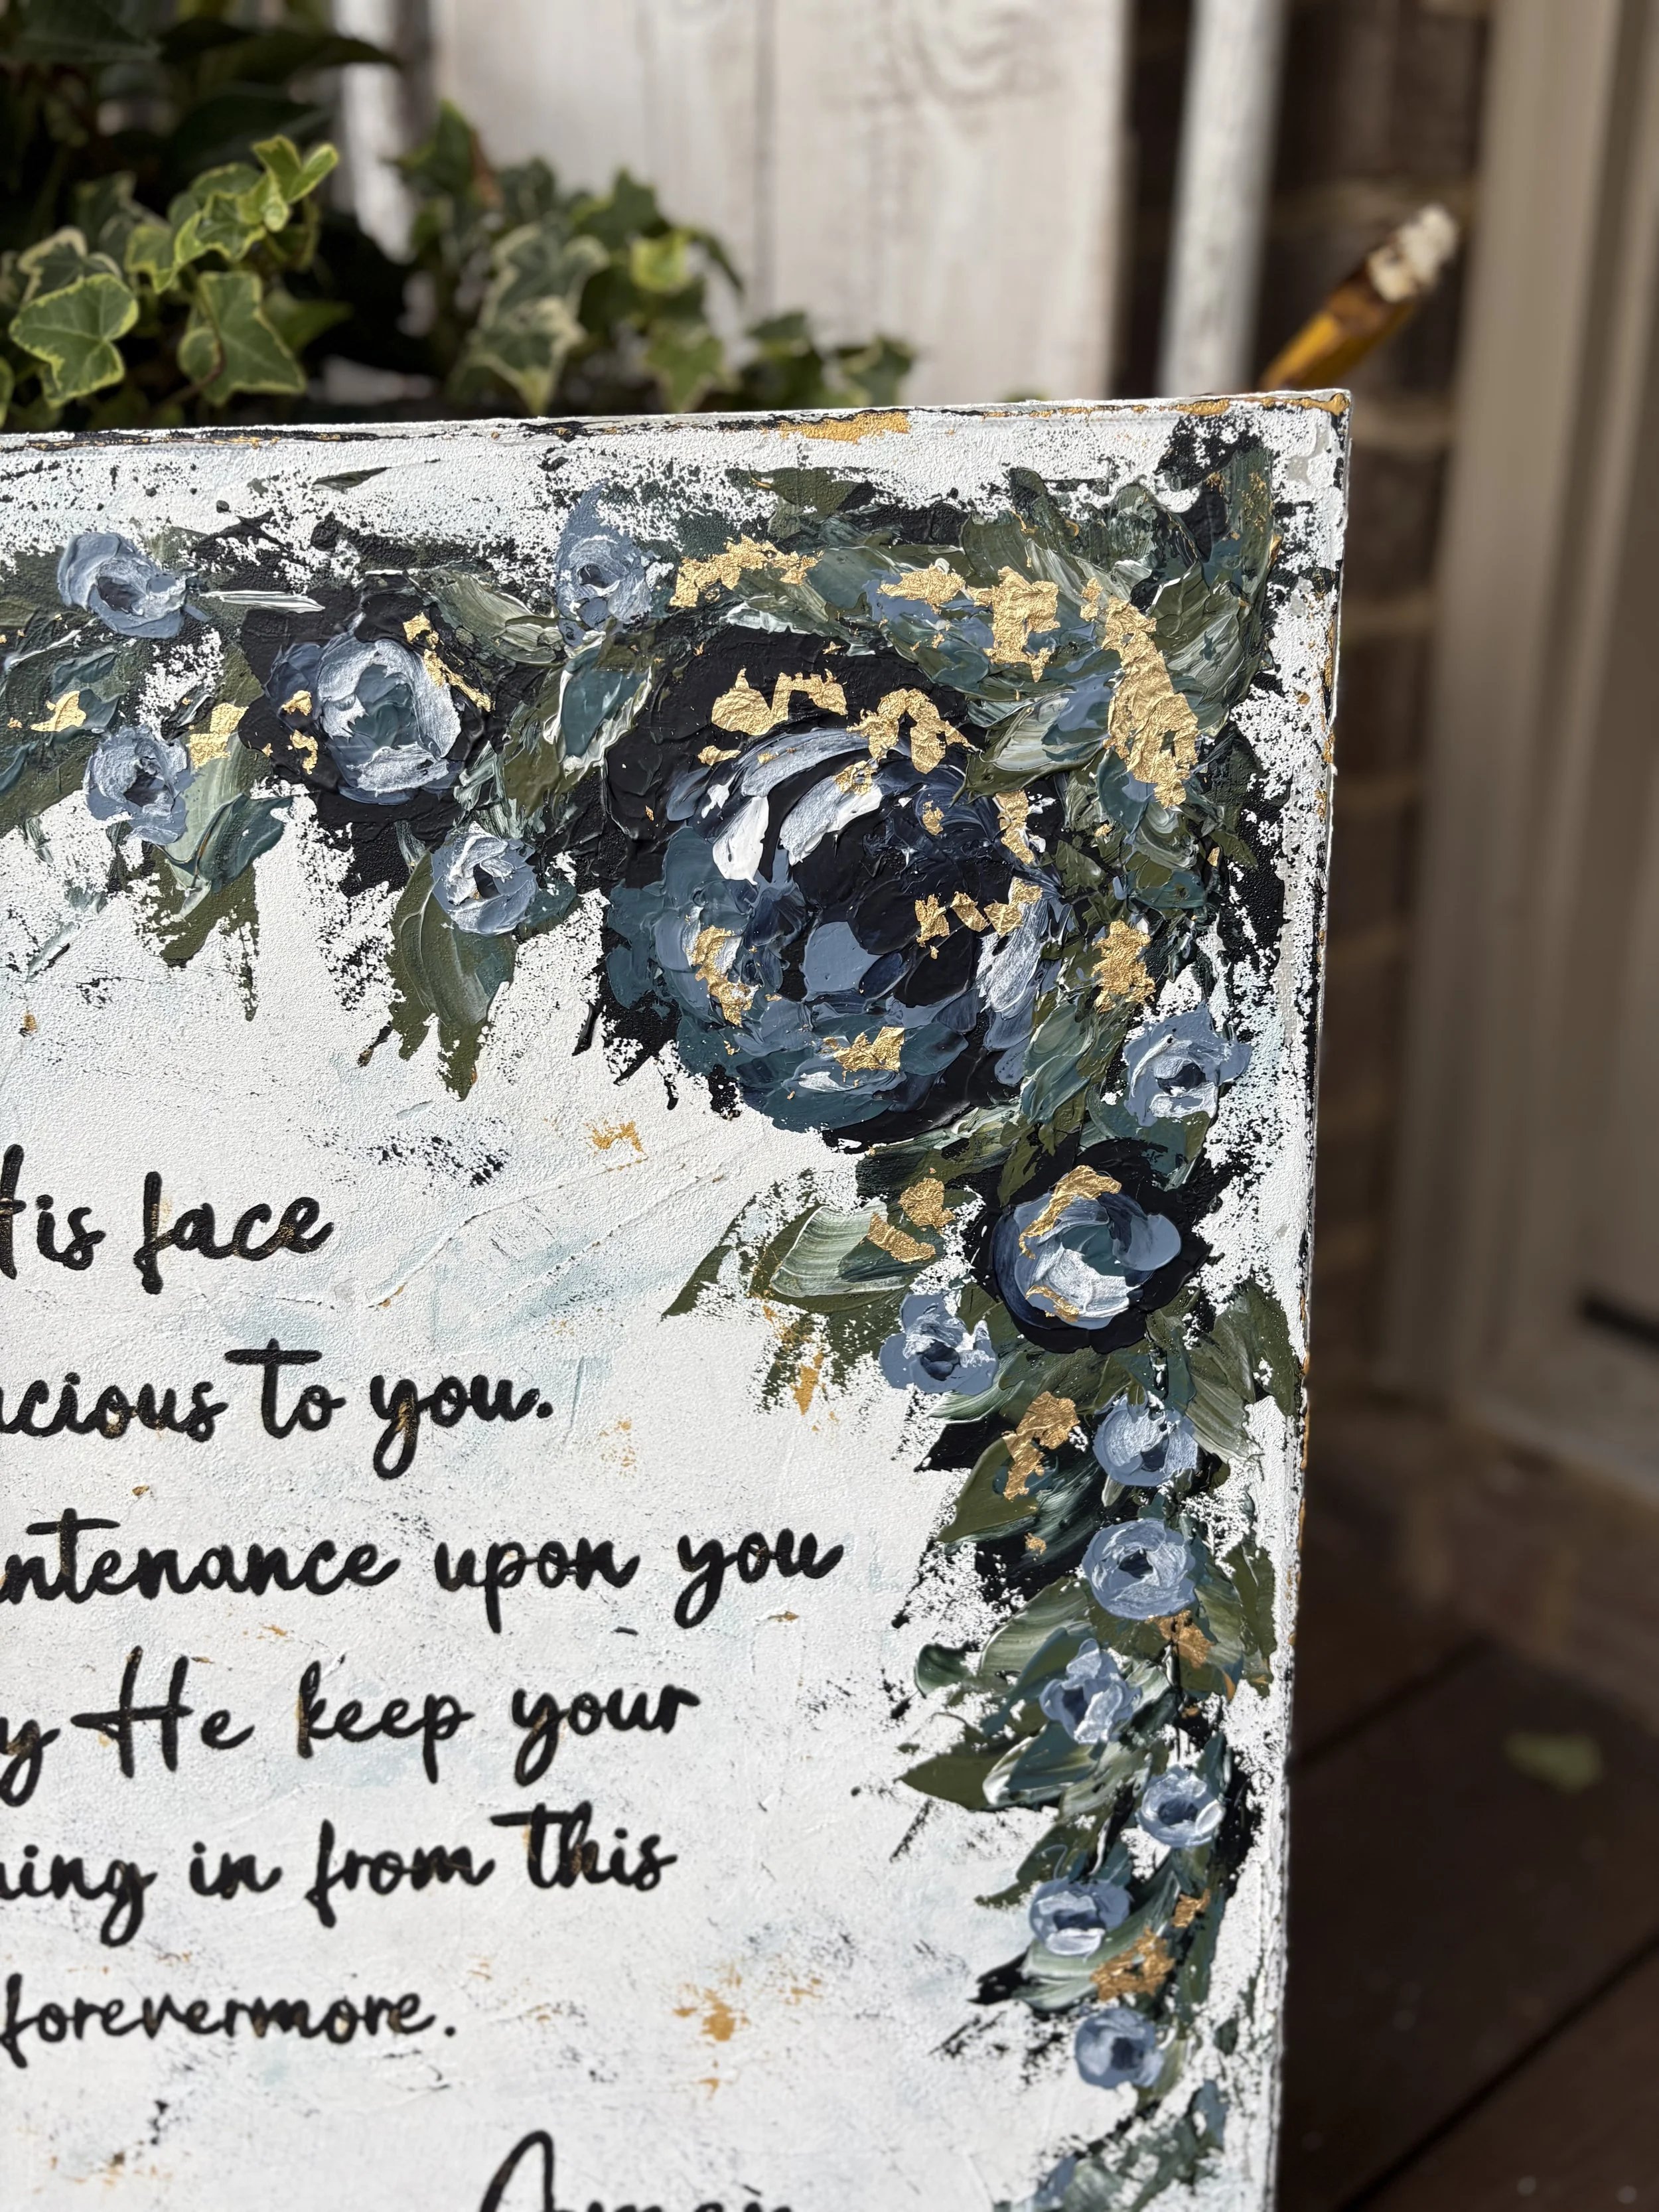 His face
acious to you.
ntenance upon you
y He keep your
ning in from this
forevermore.
Amen